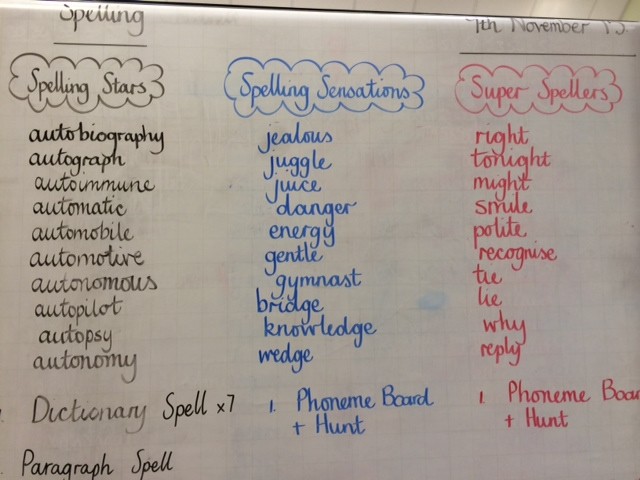 Spelling
9th November 15
Spelling Stars
autobiography
autograph
autoimmune
automatic
automobile
automotive
autonomous
autopilot
autopsy
autonomy
Dictionary Spell x7
Paragraph Spell
Spelling Sensations
jealous
juggle
juice
danger
energy
gentle
gymnast
bridge
knowledge
wedge
1. Phoneme Board
+ Hunt
Super Spellers
right
tonight
might
smile
polite
recognise
tie
lie
why
reply
1. Phoneme Boar
+ Hunt